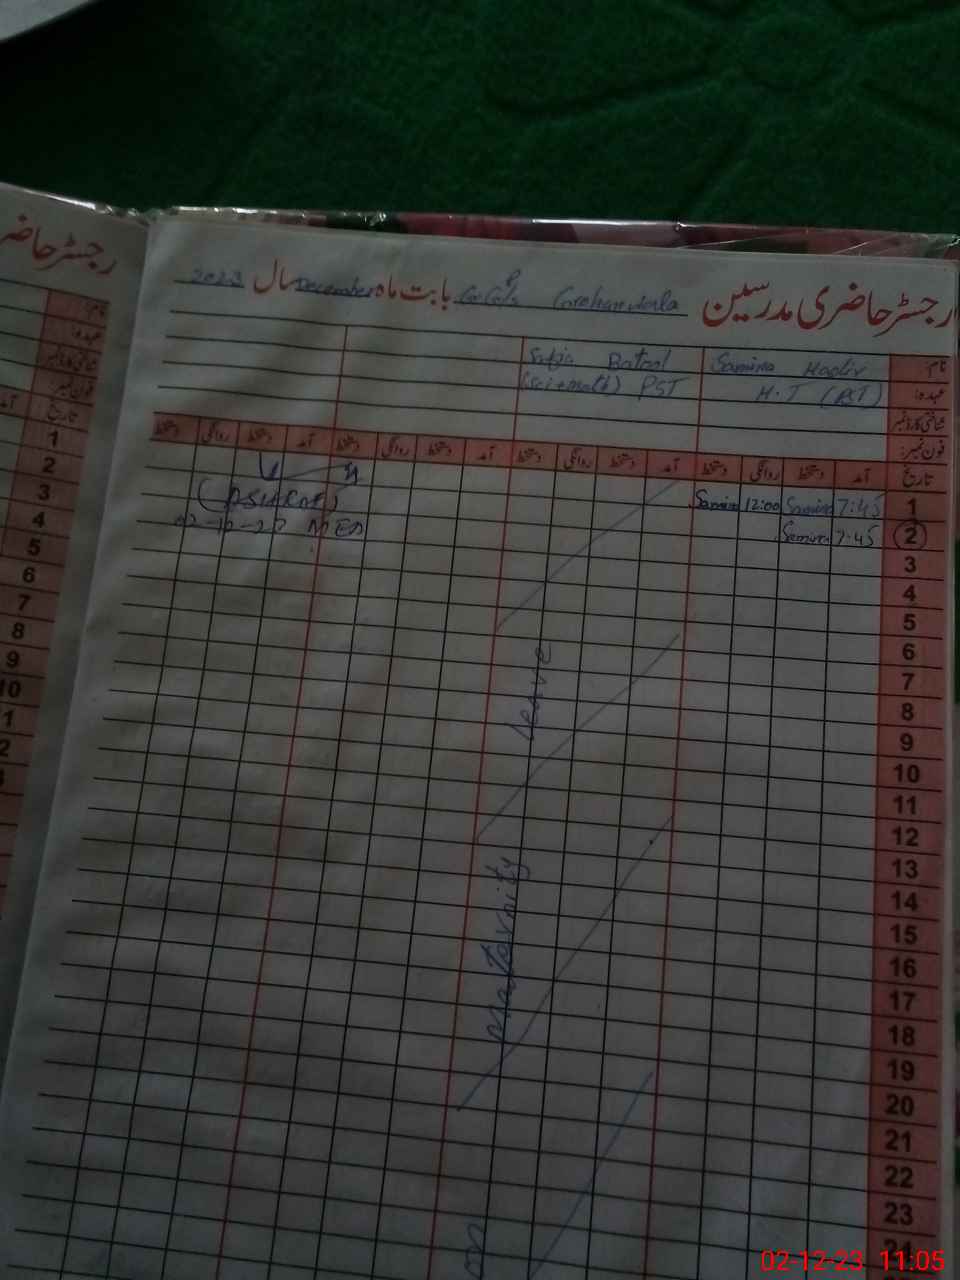 رجسٹر حاضری مدرسین بابت ماہ December سال 2023
نام: Samina Batool
عہدہ: H.T (PST) (Sci+math) PST
شناختی کارڈ نمبر
فون نمبر:
تاریخ آمد دستخط روانگی دستخط آمد دستخط روانگی دستخط آمد دستخط روانگی دستخط آمد دستخط روانگی دستخط
1 7:45 Samina 12:00 Samina
2 7:45 Samina
02-12-23 MEA
3
4
5
6
7
8
9
10
11
12
13
14
15
16
17
18
19
20
21
22
23
24
Maternity Leave
رجسٹر حاضر
نام:
عہدہ:
شناختی کارڈ نمبر
فون نمبر:
تاریخ
1
2
3
4
5
6
7
8
9
10
02-12-23 11:05